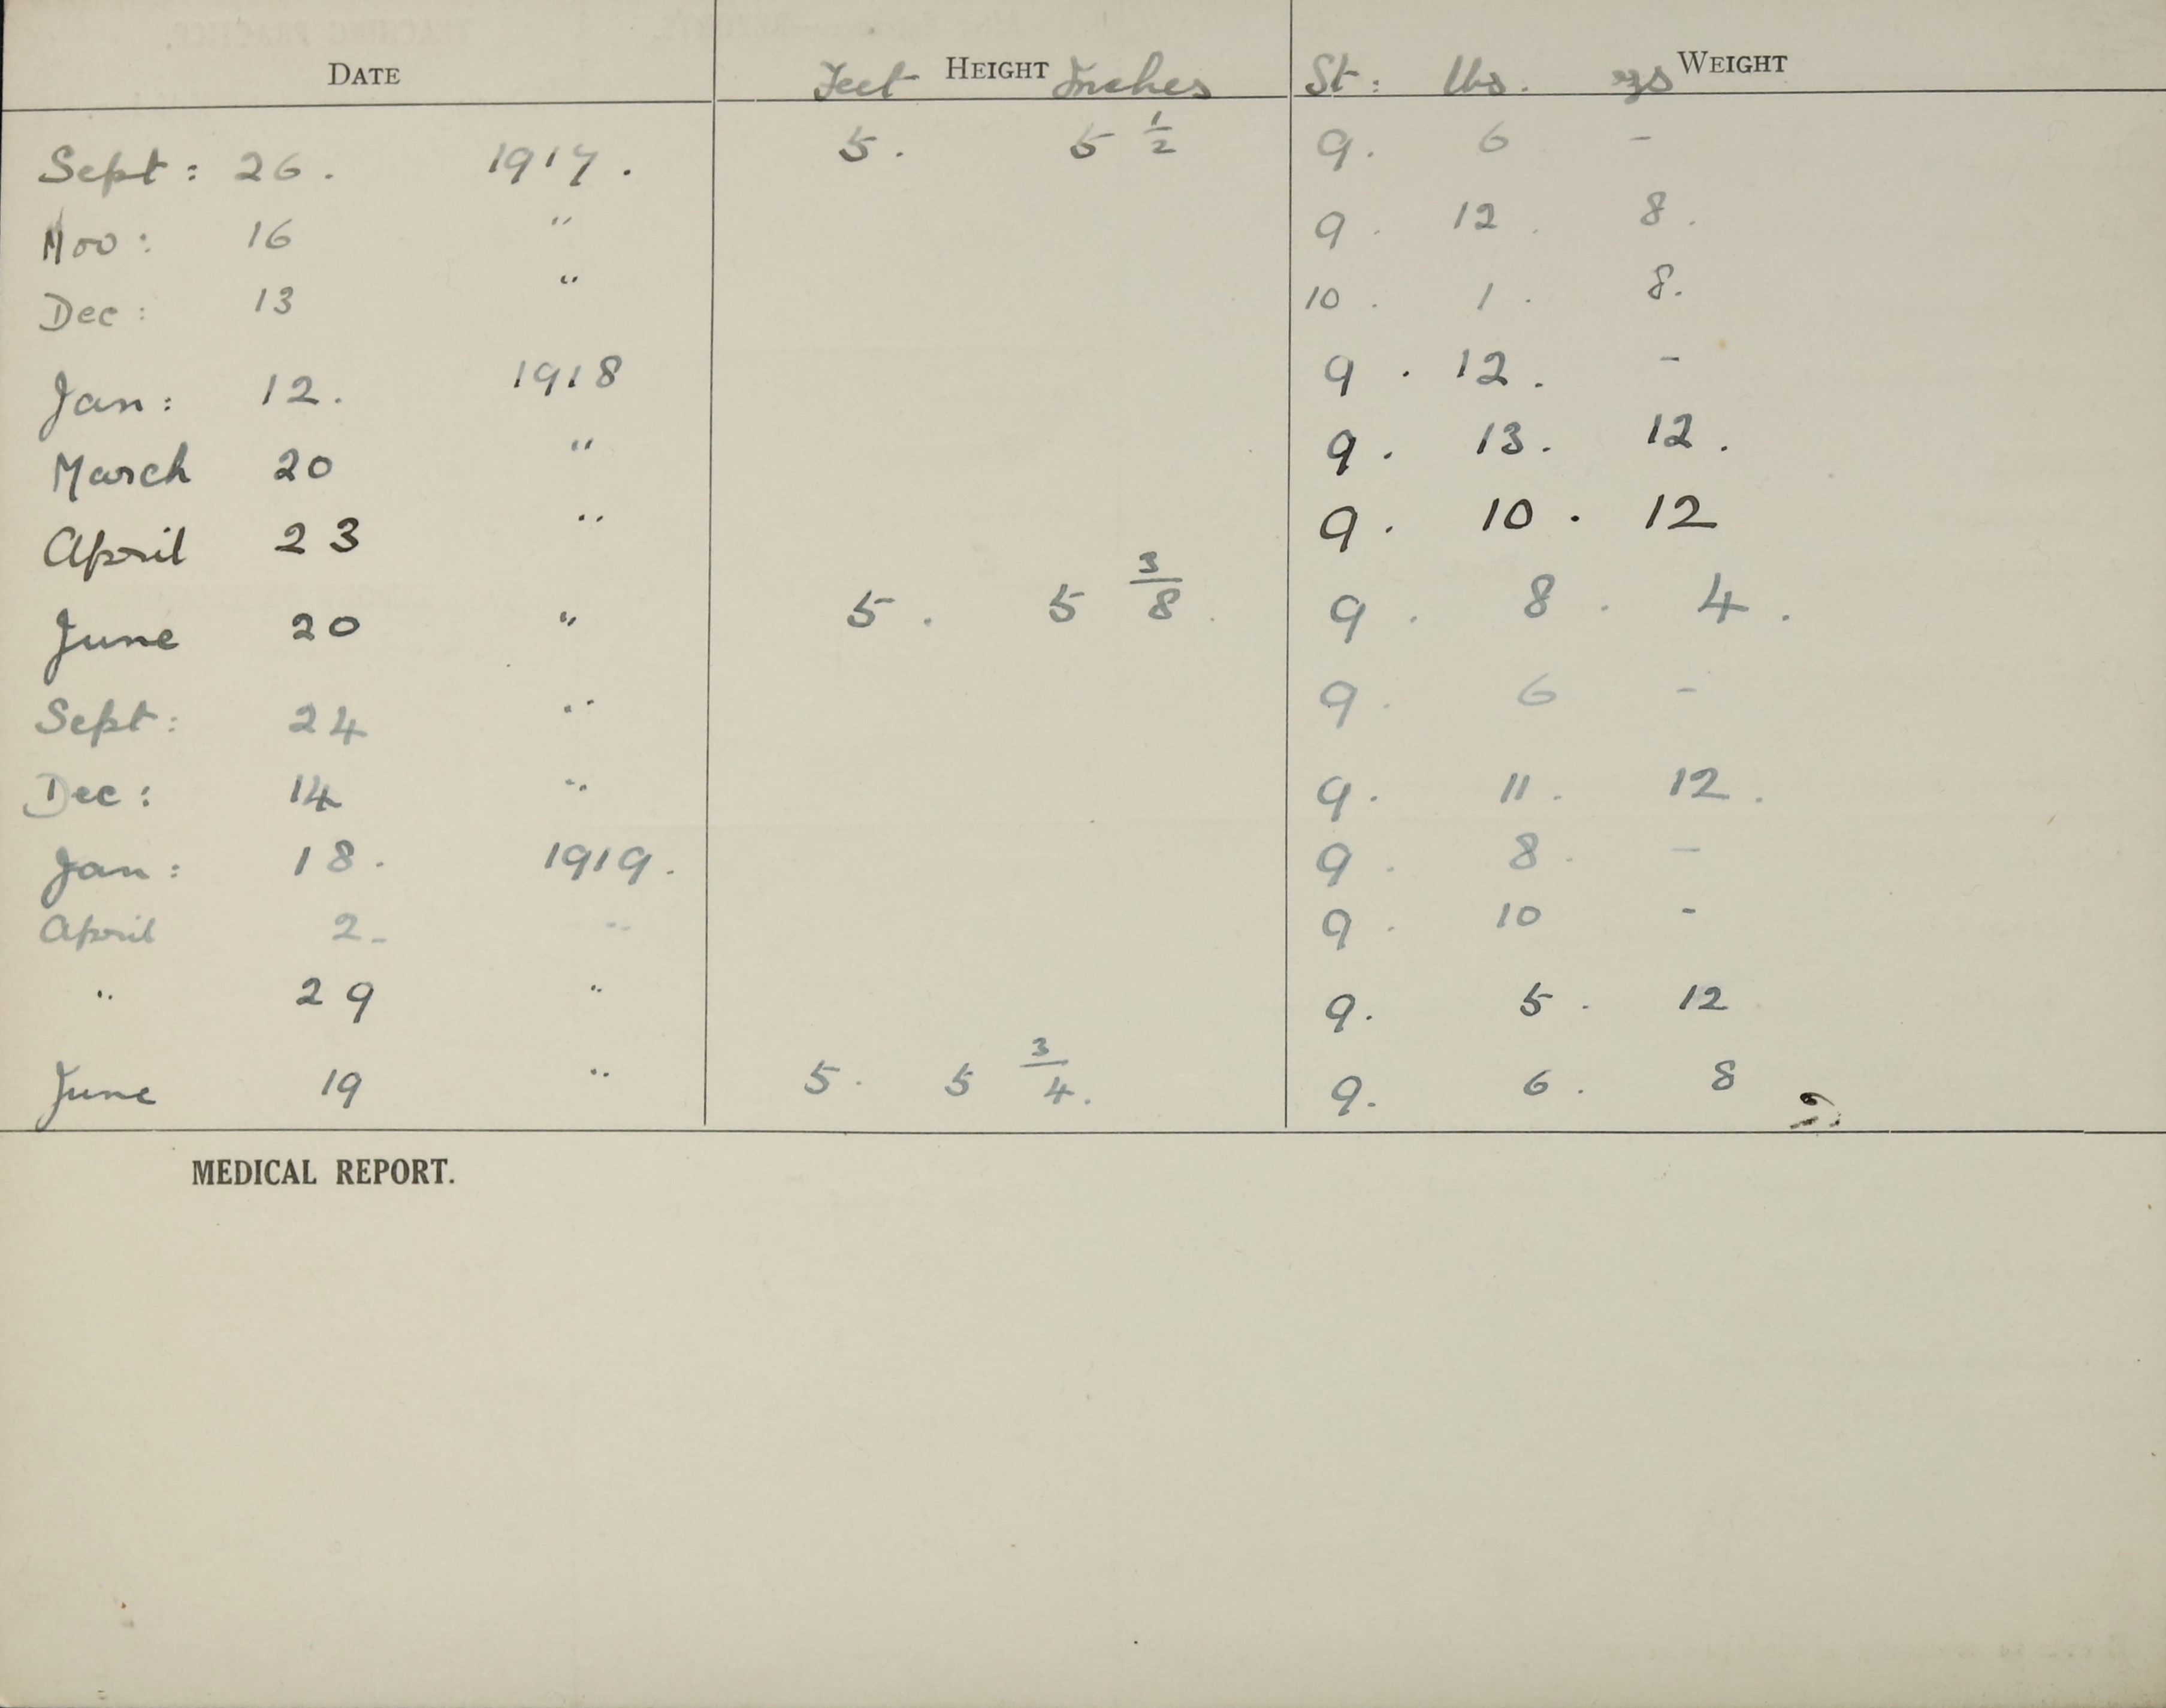 DATE Feet HEIGHT Inches St: lbs. ozs WEIGHT
Sept: 26. 1917. 5. 5 1/2 9. 6 -
Nov: 16 " 9. 12. 8.
Dec: 13 " 10. 1. 8.
Jan: 12. 1918 9. 12. -
March 20 " 9. 13. 12.
April 23 " 9. 10. 12
June 20 " 5. 5 3/8. 9. 8. 4.
Sept: 24 " 9. 6 -
Dec: 14 " 9. 11. 12.
Jan: 18. 1919. 9. 8. -
April 2- " 9. 10 -
" 29 " 9. 5. 12
June 19 " 5. 5 3/4. 9. 6. 8
MEDICAL REPORT.